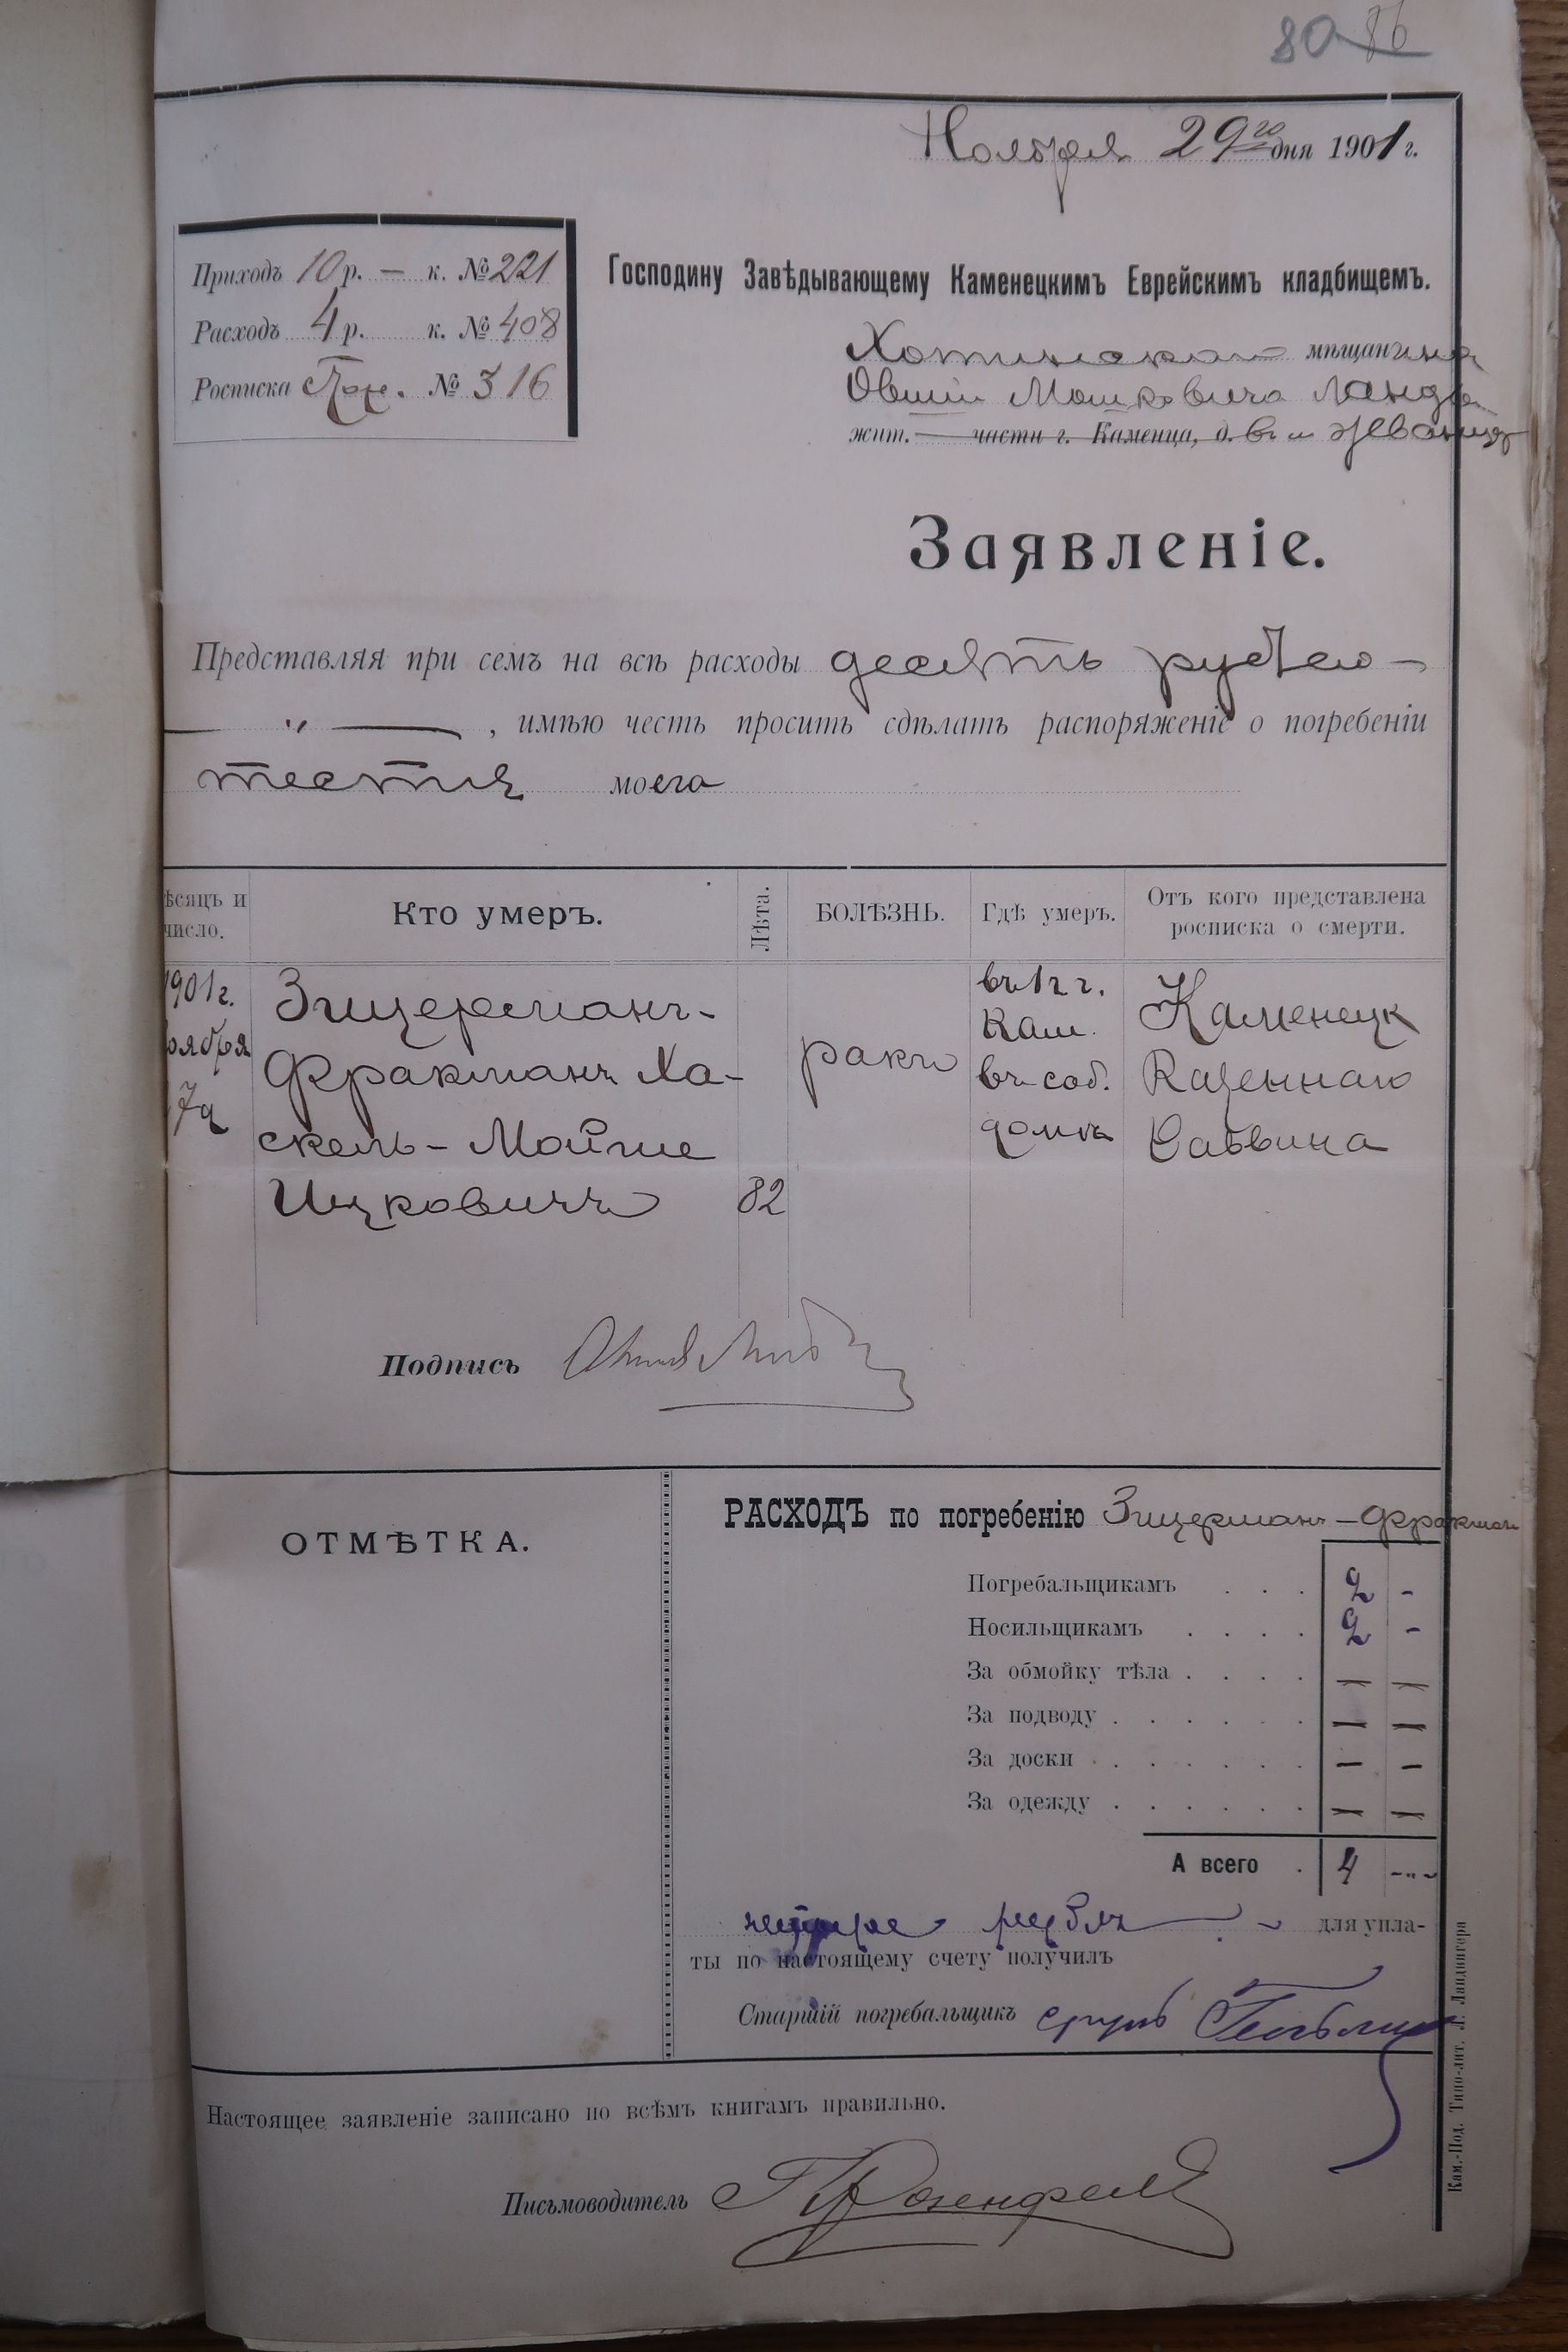 80 86
Ноября 29го дня 1901 г.
Приходъ 10 р. — к. № 221
Расходъ 4 р. к. № 408
Росписка Пох. № 316
Господину Завѣдывающему Каменецкимъ Еврейскимъ кладбищемъ.
Хотинскаго мѣщанина
Овшіи Мошковича Ланда
жит. — части г. Каменца, д. въ м Жванцѣ
Заявленіе.
Представляя при семъ на всѣ расходы десять рублей —
— „ — , имѣю честь просить сдѣлать распоряженіе о погребеніи
тестя моего
ѣсяцъ и число.
Кто умеръ.
Лѣта.
БОЛѢЗНЬ.
Гдѣ умеръ.
Отъ кого представлена росписка о смерти.
901 г.
оября
7д
Зицерманъ-
Фракманъ Ха-
скель - Мойше
Ицковичъ
82
ракъ
въ 1 ч г.
Кам.
въ соб.
домѣ
Каменецк
Казеннаго
Раввина
Подпись
ОТМѢТКА.
РАСХОДЪ по погребенію Зицерманъ - Фракман
Погребальщикамъ . . . 2 -
Носильщикамъ . . . . 2 -
За обмойку тѣла . . . . — —
За подводу . . . . . . — —
За доски . . . . . . — —
За одежду . . . . . . — —
А всего . 4 -„-
четыре рубля — для упла-
ты по настоящему счету получилъ
Старшій погребальщикъ
Настоящее заявленіе записано по всѣмъ книгамъ правильно.
Письмоводитель Розенфельд
Кам.-Под. Типо-лит. Л. Ландвигера